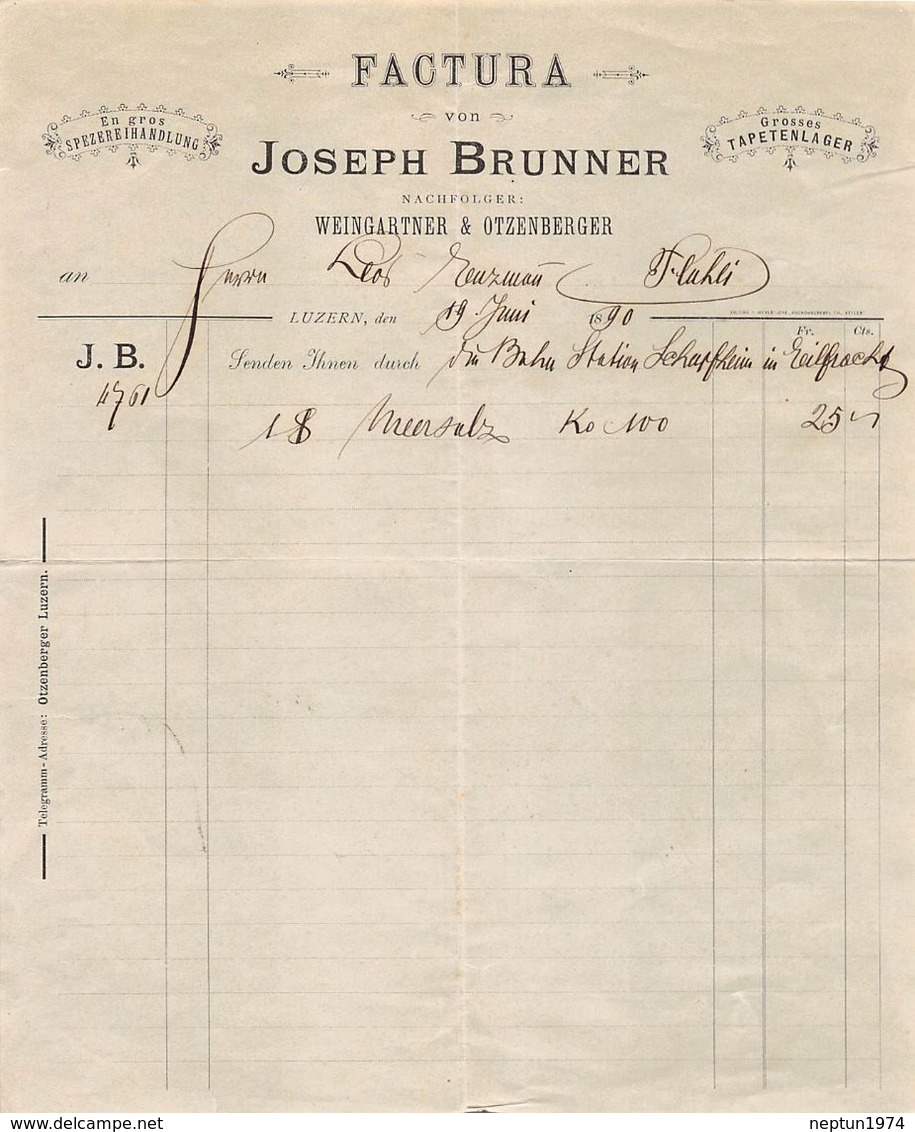 FACTURA
von
En gros
SPEZEREIHANDLUNG
Grosses
TAPETENLAGER
JOSEPH BRUNNER
NACHFOLGER:
WEINGARTNER & OTZENBERGER
an Herrn Leos Enzmann Flühli
LUZERN, den 19. Juni 1890
Fr. Cts.
J. B. Senden Ihnen durch die Bahn Station Schüpfheim in Eilfracht
4761
1 S Meersalz Ko 100 25
Telegramm-Adresse: Otzenberger Luzern.
delcampe.net
neptun1974